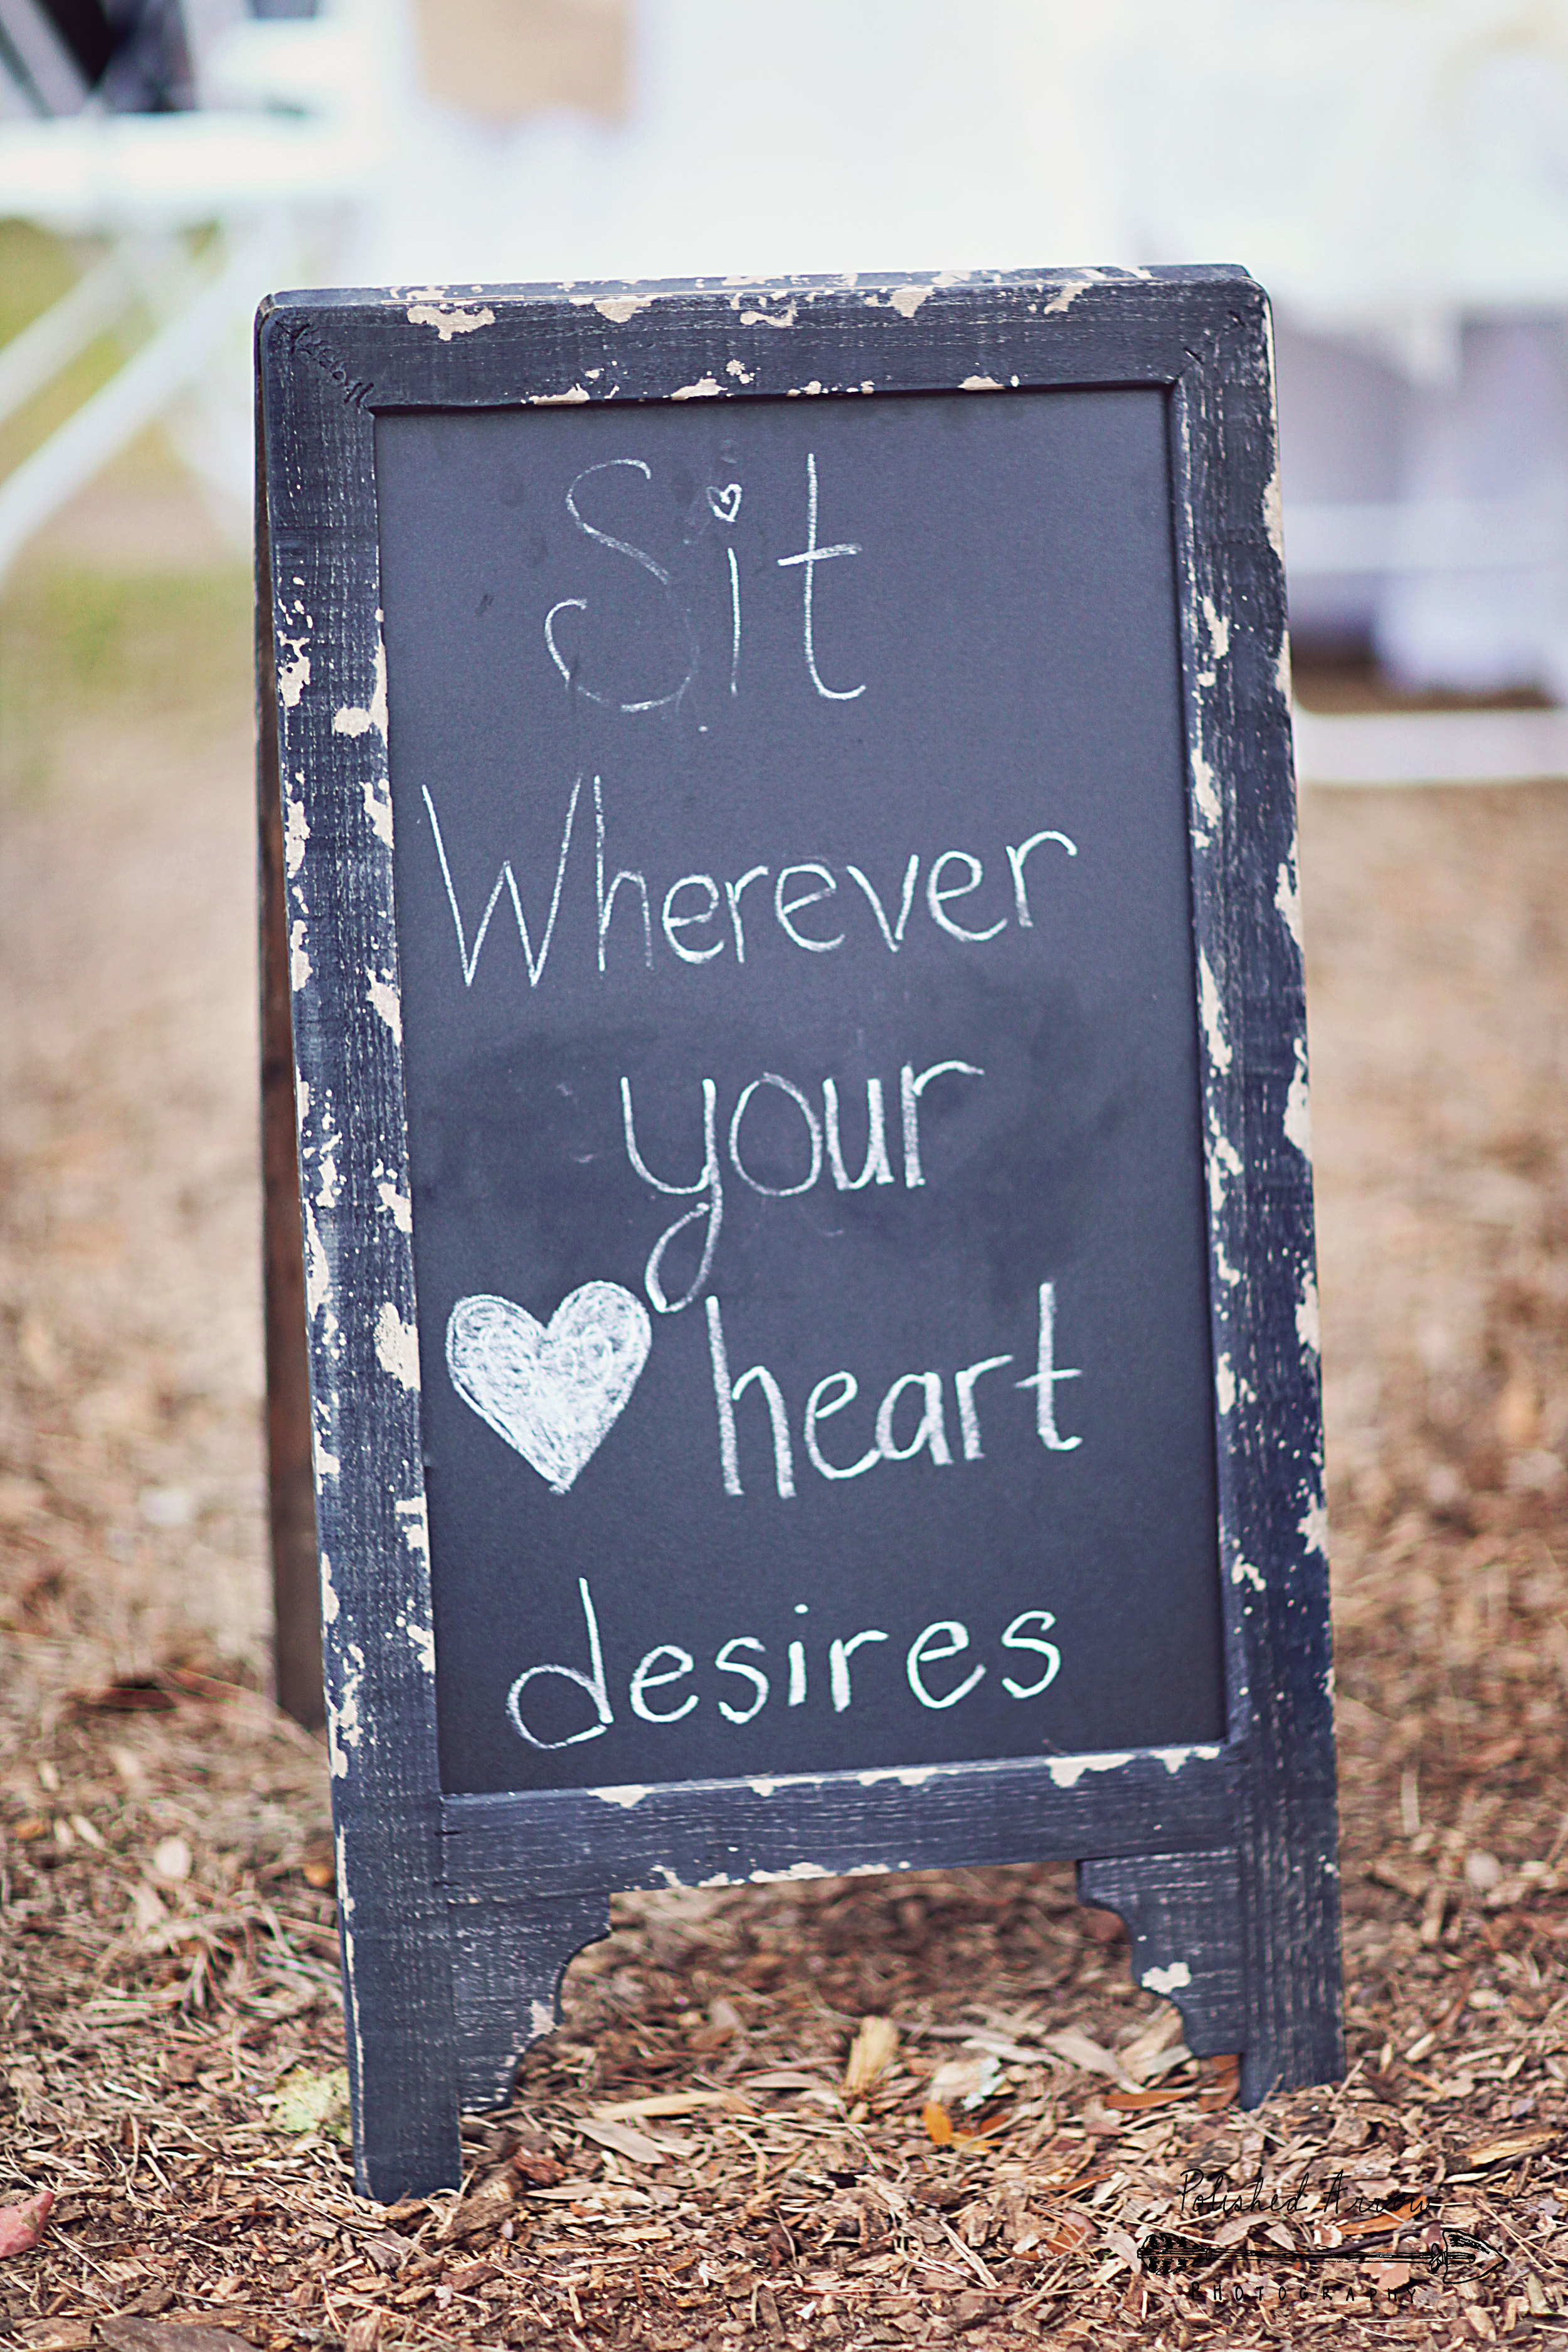 Sit
Wherever
your
heart
desires
Polished Arrow
PHOTOGRAPHY